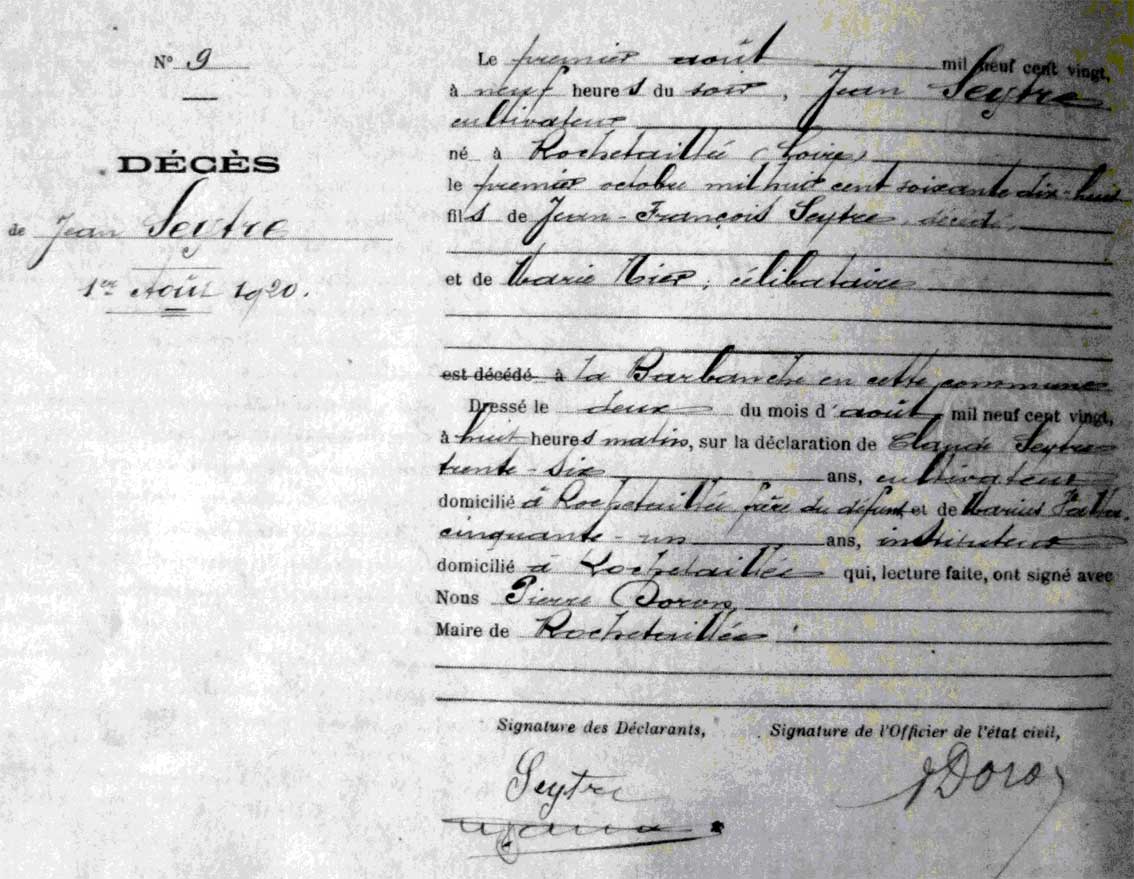 N° 9
DÉCÈS
de Jean Seytre
1er Août 1920.
Le premier août mil neuf cent vingt,
à neuf heures du soir, Jean Seytre
cultivateur
né à Rochetaillée (Loire)
le premier octobre mil huit cent soixante dix-huit
fils de Jean-François Seytre, décédé,
et de Marie Mier, célibataire
est décédé à la Barbanche en cette commune
Dressé le deux du mois d'août, mil neuf cent vingt,
à huit heures matin, sur la déclaration de Claude Seytre
trente-six ans, cultivateur
domicilié à Rochetaillée frère du défunt et de Marius
cinquante-un ans, instituteur
domicilié à Rochetaillée qui, lecture faite, ont signé avec
Nous Pierre Doron,
Maire de Rochetaillée
Signature des Déclarants, Signature de l'Officier de l'état civil,
Seytre